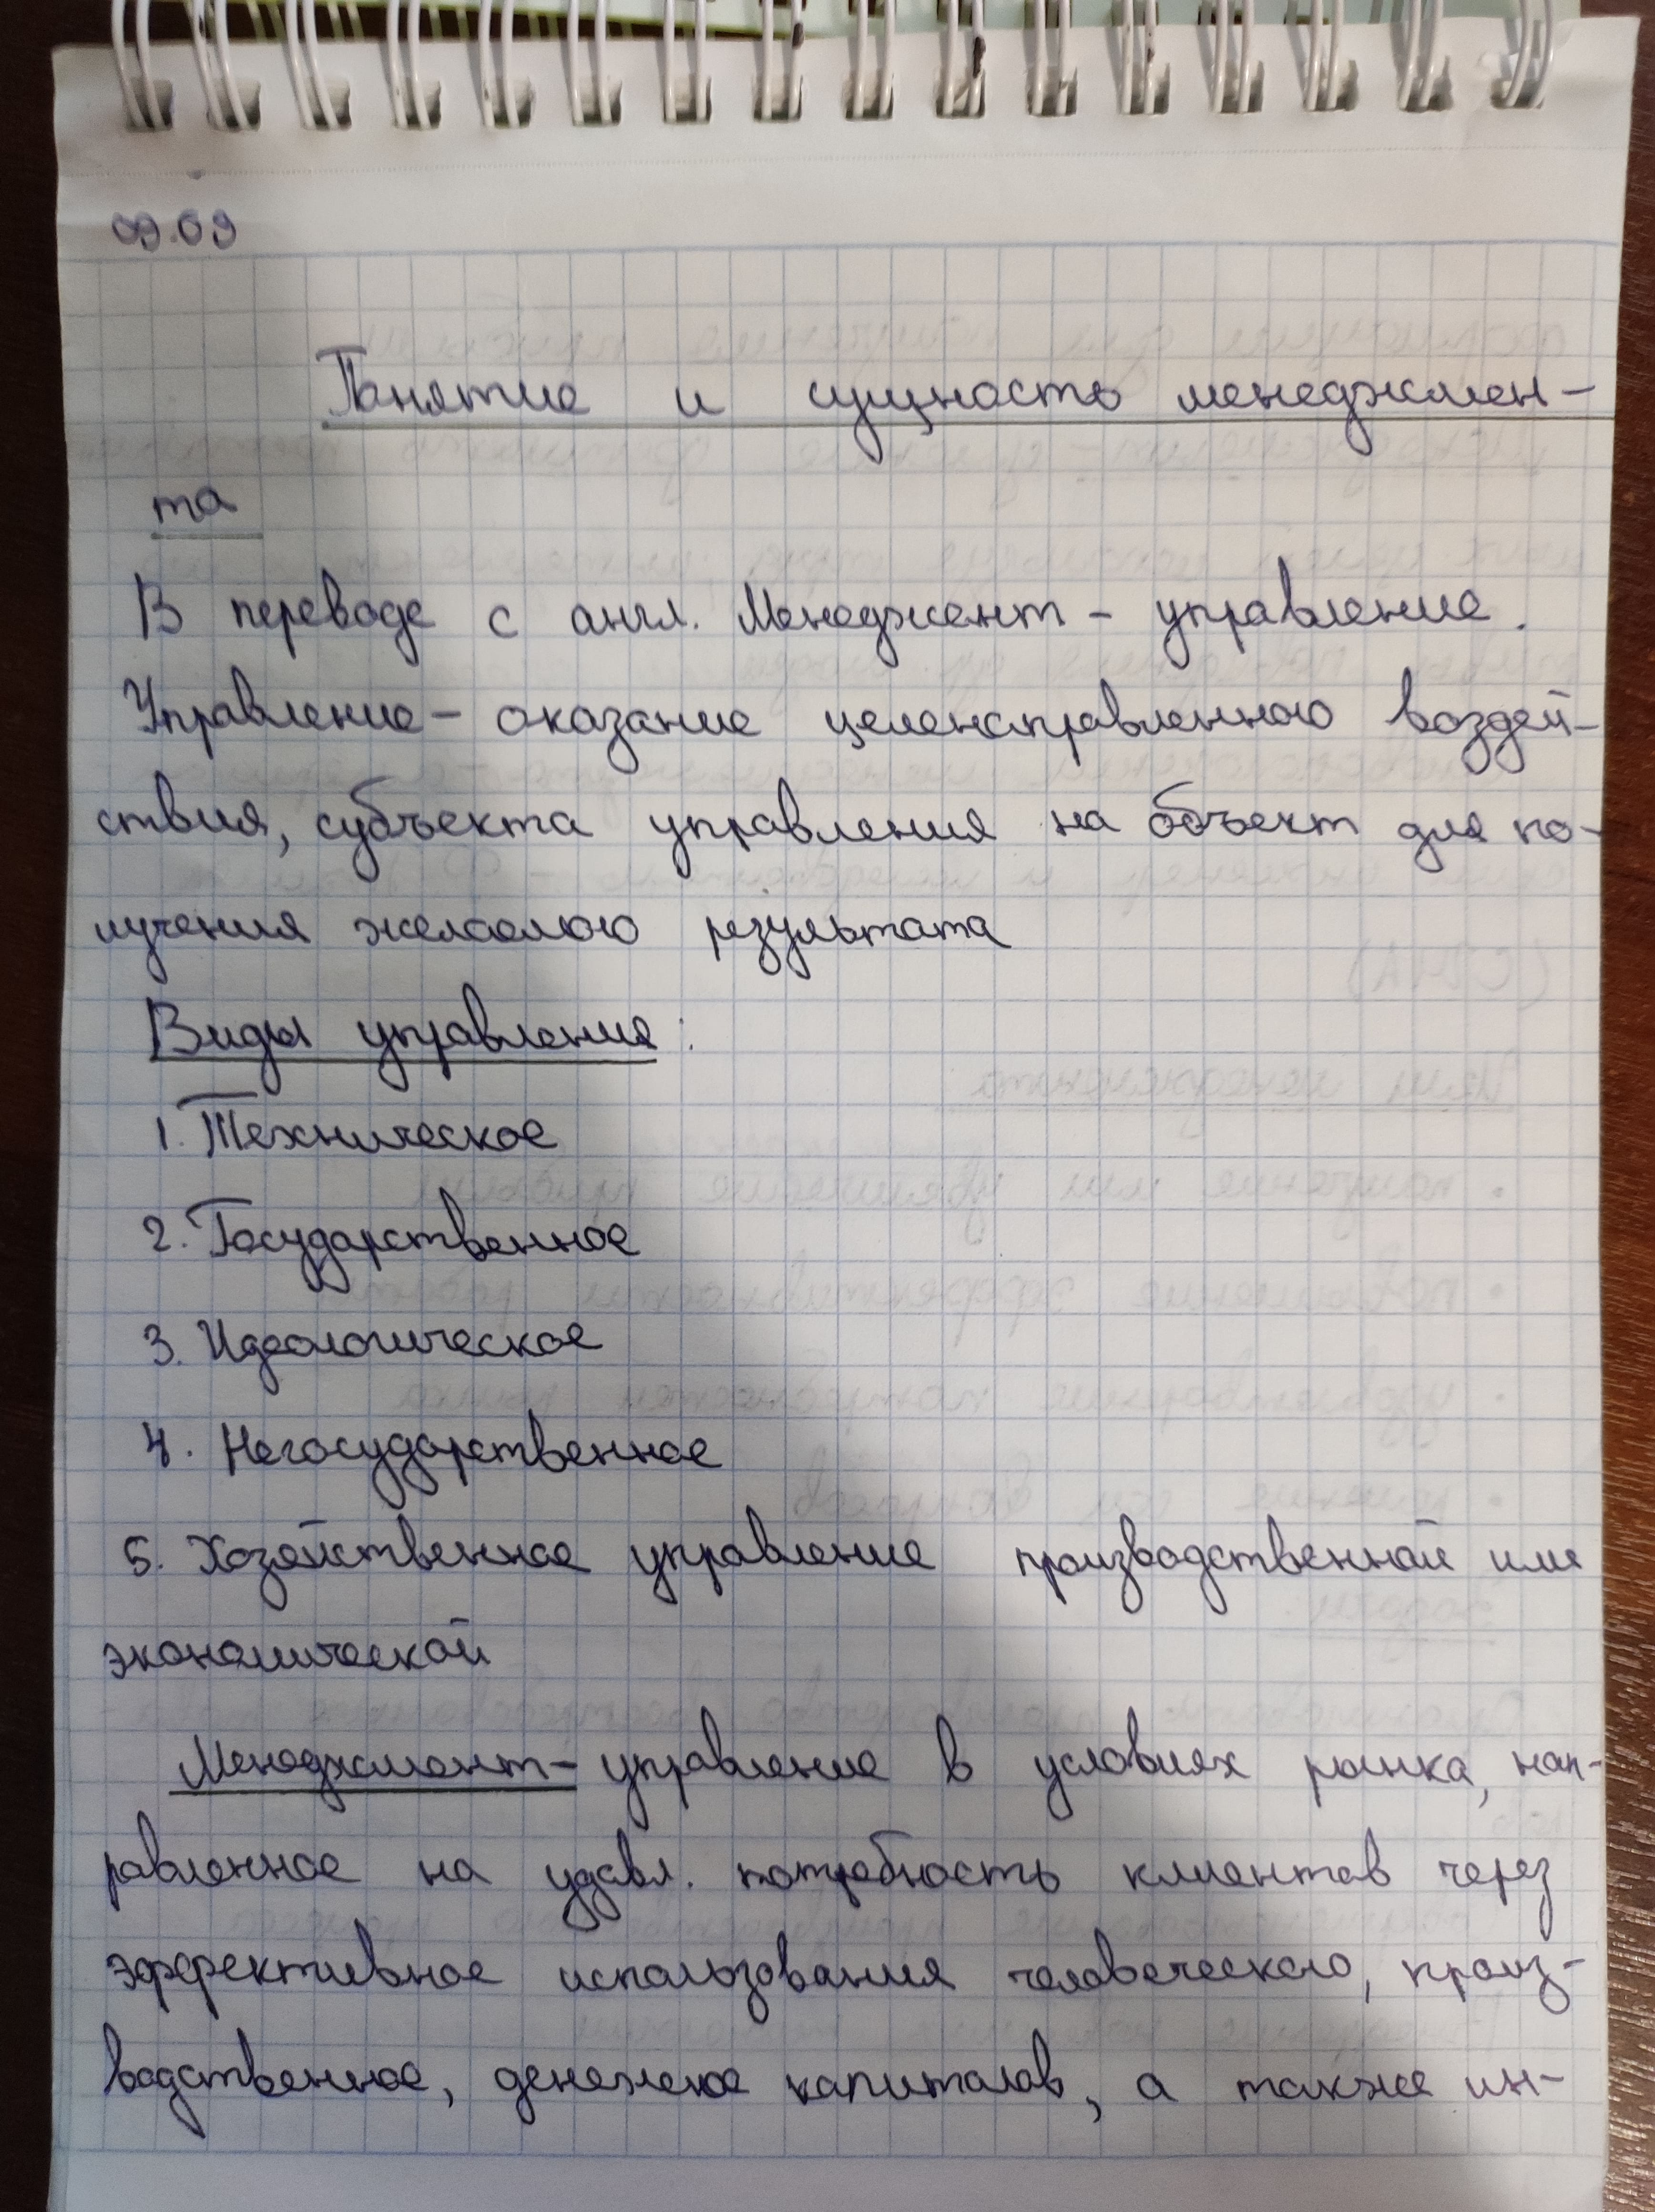 09.09
Понятие и сущность менеджмен-
та
В переводе с англ. Менеджент - управление.
Управление - оказание целенаправленного воздей-
ствия, субъекта управления на объект для по-
лучения желаемого результата
Виды управления:
1. Техническое
2. Государственное
3. Идеологическое
4. Негосударственное
5. Хозяйственное управление производственной или
экономической
Менеджмент - управление в условиях рынка, нап-
равленное на удовл. потребность клиентов через
эффективное использования человеческого, произ-
водственное, денежное капиталов, а также ин-